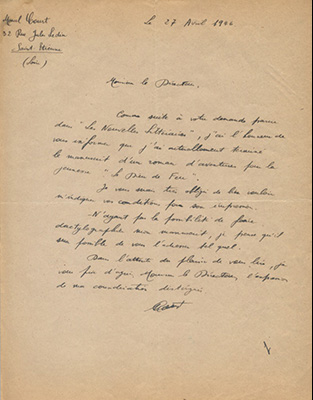 Marcel Court
32 Rue Jules Ledin
Saint Etienne
(Loire)
Le 27 Avril
Monsieur le Directeur,
Comme suite à votre demande parue
dans "Les Nouvelles Littéraires", j'ai l'honneur de
vous informer que j'ai actuellement terminé
le manuscrit d'un roman d'aventures pour la
jeunesse "Le Dieu de Feu".
Je vous serais très obligé de bien vouloir
m'indiquer vos conditions pour son impression.
N'ayant pas la possibilité de faire
dactylographier mon manuscrit, je pense qu'il
sera possible de vous l'adresser tel quel.
Dans l'attente du plaisir de vous lire, je
vous prie d'agréer, Monsieur le Directeur, l'expression
de ma considération distinguée.